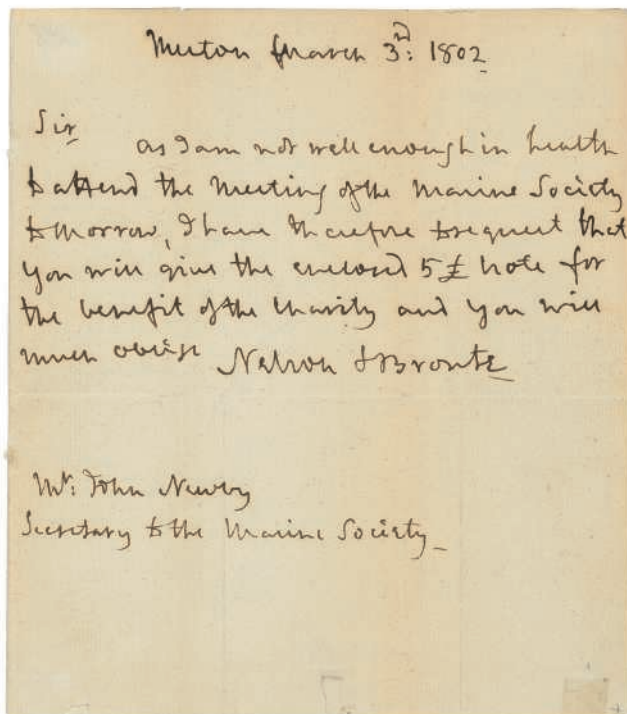 Merton March 3rd: 1802
Sir
as I am not well enough in health
to attend the Meeting of the Marine Society
tomorrow, I have therefore to request that
you will give the enclosed 5£ note for
the benefit of the Charity and you will
much oblige Nelson & Bronte
Mr: John Newby
Secretary to the Marine Society_